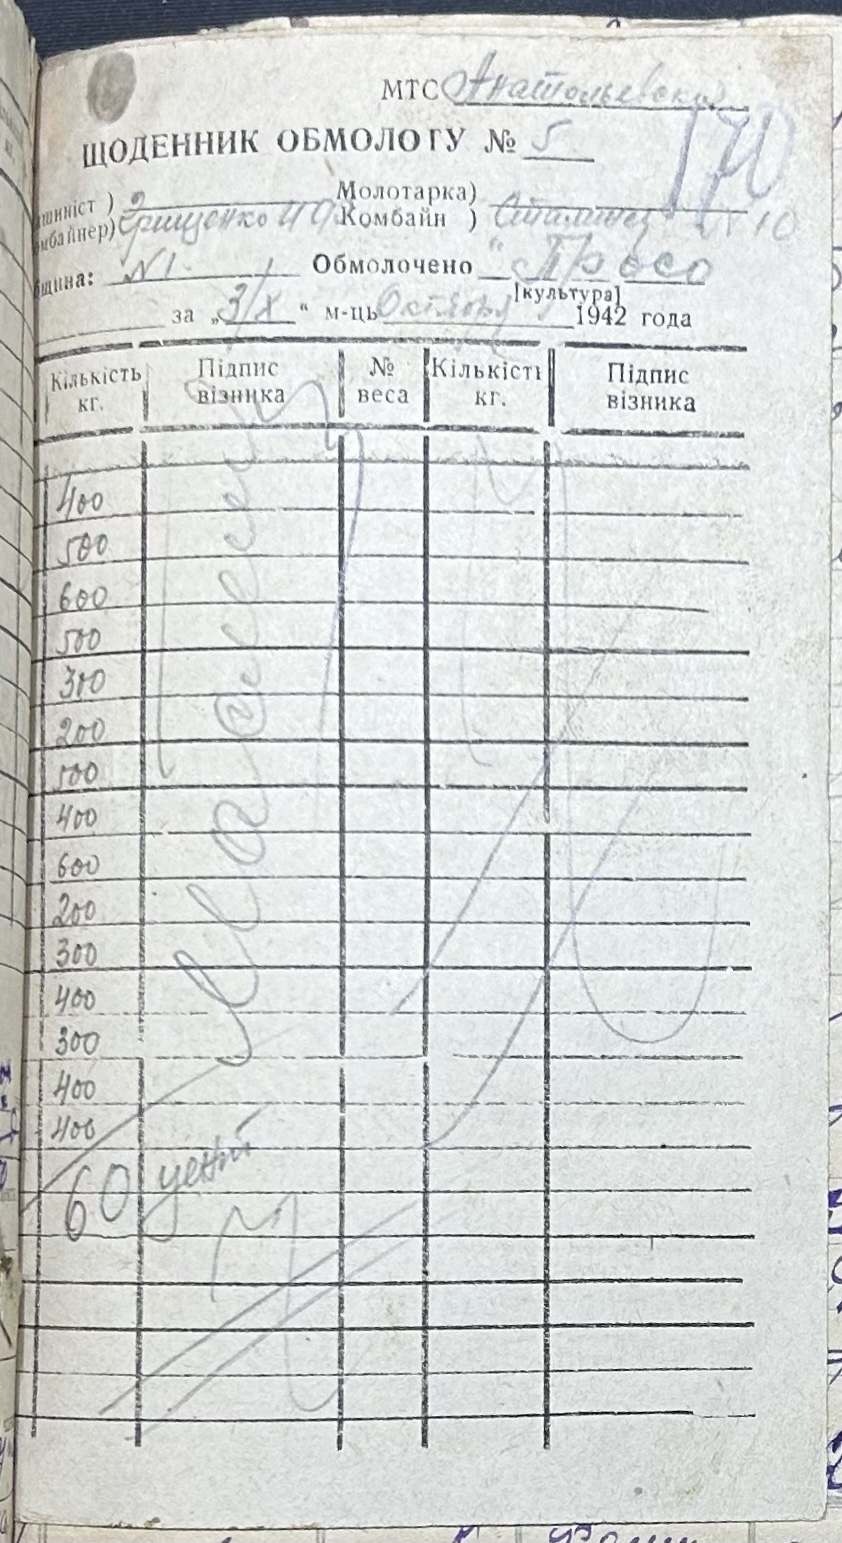 МТС Анатольевская
ЩОДЕННИК ОБМОЛОГУ № 5
170
шиніст ) Молотарка)
мбайнер) Грищенко Комбайн ) Сталинец 10
бщина: №1. Обмолочено „Просо
[культура]
за „3/X“ м-ць Октября 1942 года
Кількість кг. Підпис візника № веса Кількість кг. Підпис візника
400
500
600
500
300
200
500
400
600
200
300
400
300
400
400
60 цент